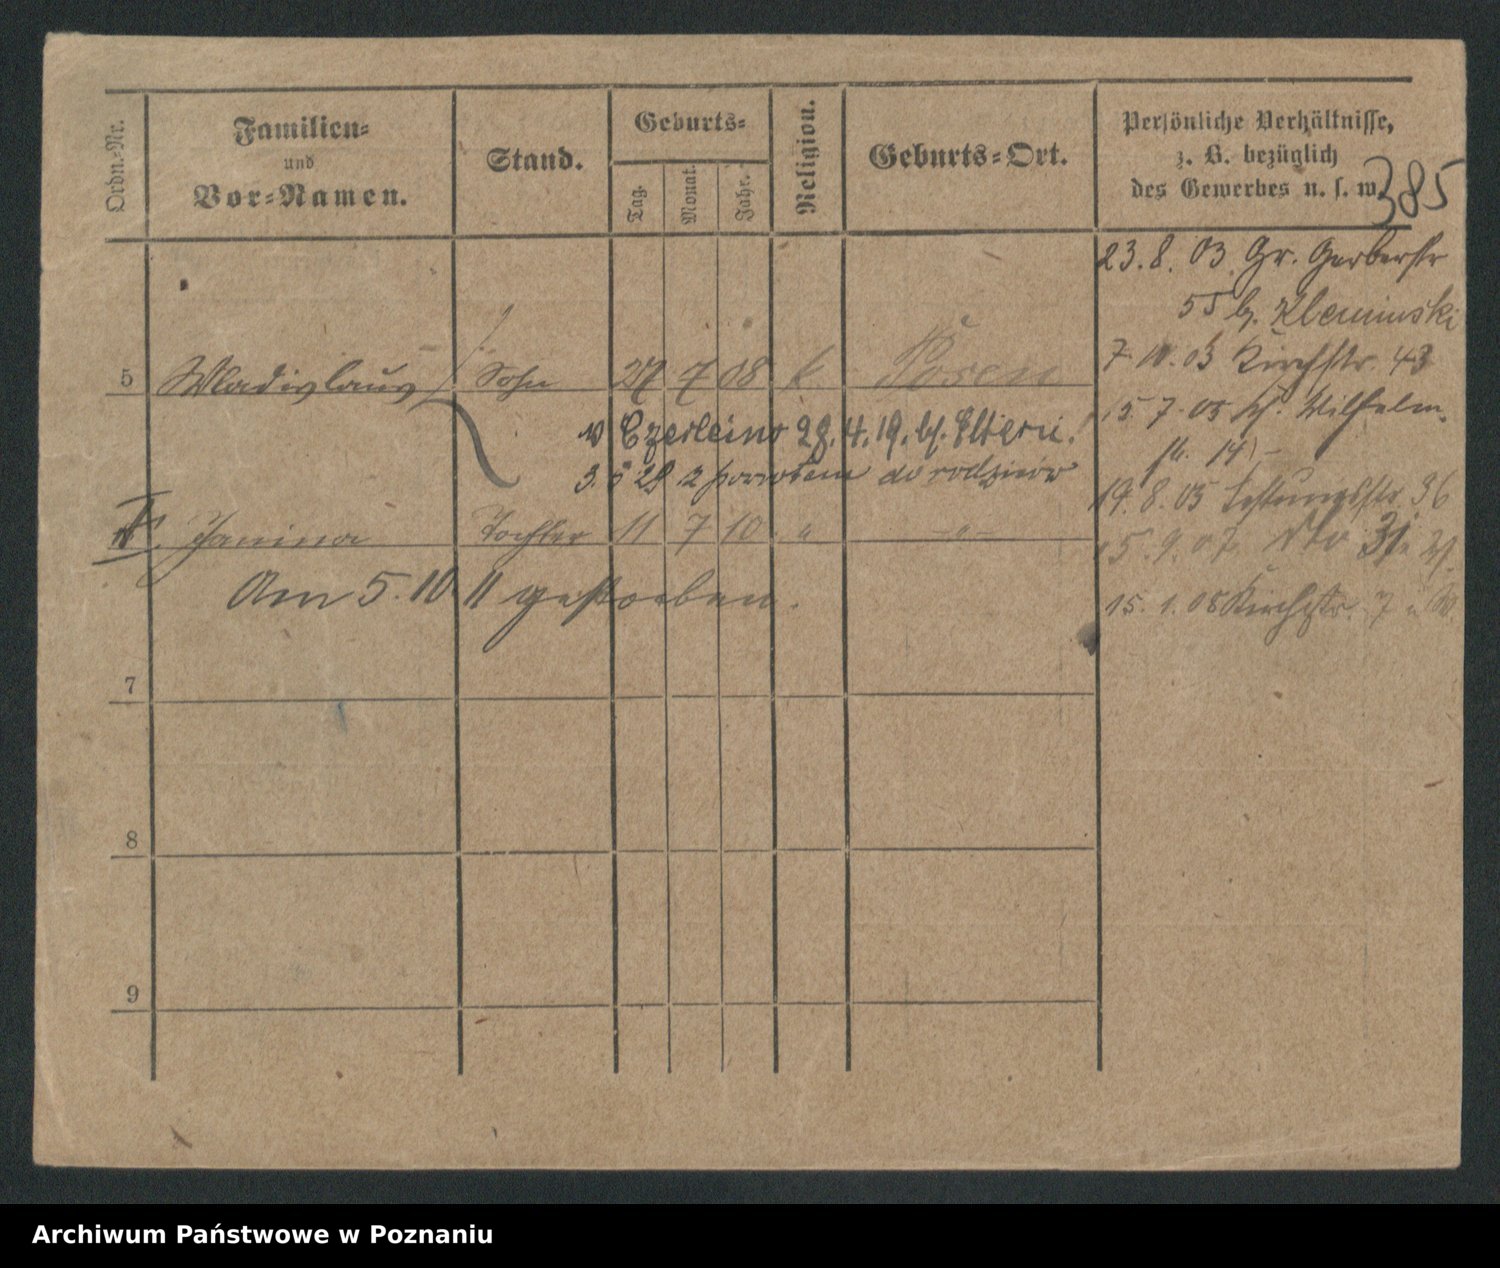 Ordn.-Nr.
Familien-
und
Vor-Namen.
Stand.
Geburts-
Tag.
Monat.
Jahr.
Religion.
Geburts-Ort.
Persönliche Verhältnisse,
z. B. bezüglich
des Gewerbes u. s. w.
385
23. 8. 03. Gr. Gerberstr
55 b.
7. 10. 03 Kirchstr. 43
15. 7. 05 Wilhelm-
str. 14
5 Wladislaus Sohn 27 7 08 k. Posen
v Czerleino 28. 4. 19. bf. Eltern.
3. 5 29 z powrotem do rodziców
19. 8. 05 36
Janina Tochter 11 7 10 " — " —
15. 9. 07 31
Am 5. 10. 11 gestorben.
15. 1. 08 Kirchstr. 7
7
8
9
Archiwum Państwowe w Poznaniu